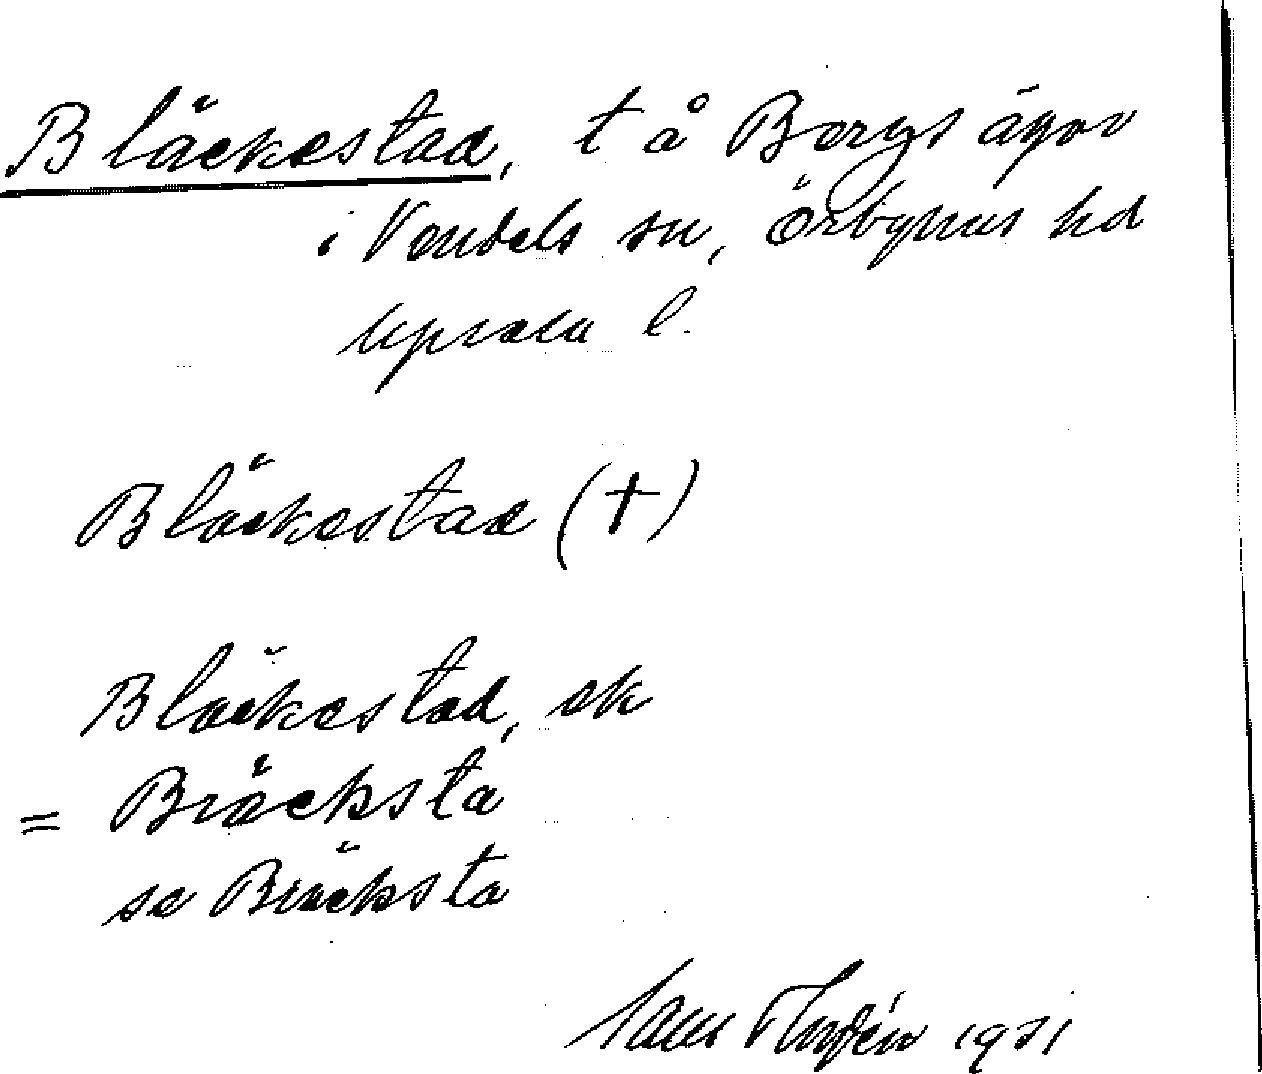 Bläckestad, t å Bergs ägor
i Vendels sn, Örbyhus hd
Upsala l.
Bläckestad (†)
Bläckestad, ek
= Bräcksta
se Bräcksta
1931